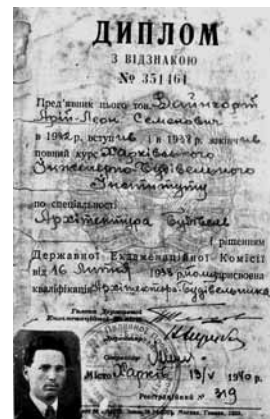 ДИПЛОМ
З ВІДЗНАКОЮ
№ 351461
Пред'явник цього тов. Вайнгорт
Арій-Леон Семенович
в 1932 р. вступив і в 1938 р. закінчив
повний курс Харківського
Інженерно-Будівельного
Інституту
по спеціальності
Архітектура Будівель
рішенням
Державної Екзаменаційної Комісії
від 16 Лютня 1938 р. йому присвоєна
кваліфікація Архітектора-Будівельника
Голова Державної
Екзаменаційної Комісії
Директор
Секретар
Місто Харків 13/V 1940 р.
Реєстраційний № 319